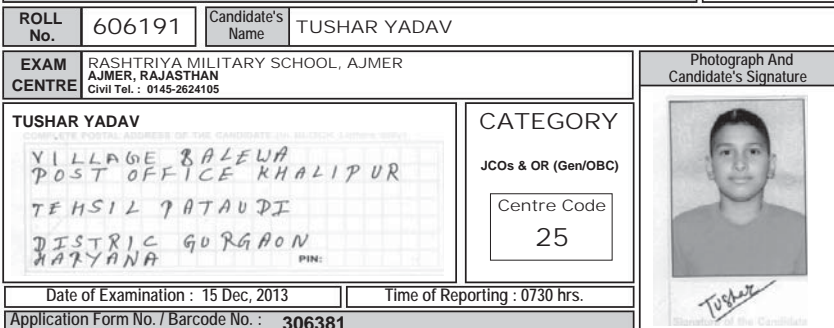 ROLL No.
606191
Candidate's Name
TUSHAR YADAV
EXAM CENTRE
RASHTRIYA MILITARY SCHOOL, AJMER
AJMER, RAJASTHAN
Civil Tel. : 0145-2624105
Photograph And
Candidate's Signature
TUSHAR YADAV
COMPLETE POSTAL ADDRESS OF THE CANDIDATE
VILLAGE BALEWA
POST OFFICE KHALIPUR
TEHSIL PATAUDI
DISTRIC GURGAON
HARYANA
PIN:
CATEGORY
JCOs & OR (Gen/OBC)
Centre Code
25
Tushar
Signature of the Candidate
Date of Examination : 15 Dec, 2013
Time of Reporting : 0730 hrs.
Application Form No. / Barcode No. : 306381